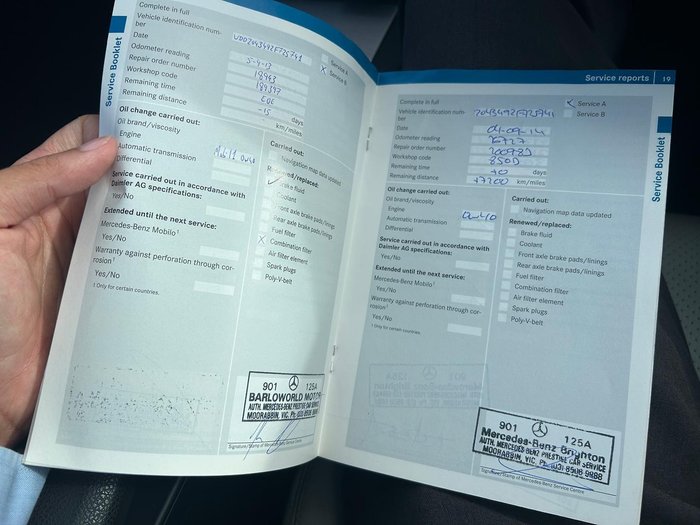 Service Booklet
Complete in full
Vehicle identification num-
ber
Date 5-9-13
Odometer reading 18943
Repair order number
Workshop code
Remaining time -15 days
Remaining distance km/miles
Service A
X Service B
Oil change carried out:
Oil brand/viscosity
Engine Mobil 1 0w40
Automatic transmission
Differential
Service carried out in accordance with
Daimler AG specifications:
Extended until the next service:
Mercedes-Benz Mobilo¹
Yes/No
Warranty against perforation through cor-
rosion¹
Yes/No
¹ Only for certain countries.
Carried out:
Navigation map data updated
Renewed/replaced:
Brake fluid
Coolant
Front axle brake pads/linings
Rear axle brake pads/linings
Fuel filter
X Combination filter
Air filter element
Spark plugs
Poly-V-belt
901 125A
BARLOWORLD MOTOR
AUTH. MERCEDES-BENZ PRESTIGE CAR SERVICE
MOORABBIN, VIC.
Signature/Stamp of Mercedes-Benz Service Centre
Service reports 19
Service Booklet
Complete in full
Vehicle identification num-
ber
Date 04-09-14
Odometer reading
Repair order number
Workshop code
Remaining time days
Remaining distance +7200 km/miles
Service A
Service B
Oil change carried out:
Oil brand/viscosity
Engine 0w40
Automatic transmission
Differential
Service carried out in accordance with
Daimler AG specifications:
Extended until the next service:
Mercedes-Benz Mobilo¹
Yes/No
Warranty against perforation through cor-
rosion¹
Yes/No
¹ Only for certain countries.
Carried out:
Navigation map data updated
Renewed/replaced:
Brake fluid
Coolant
Front axle brake pads/linings
Rear axle brake pads/linings
Fuel filter
Combination filter
Air filter element
Spark plugs
Poly-V-belt
901 125A
Mercedes-Benz Brighton
AUTH. MERCEDES BENZ PRESTIGE CAR SERVICE
MOORABBIN, VIC.
Signature/Stamp of Mercedes-Benz Service Centre